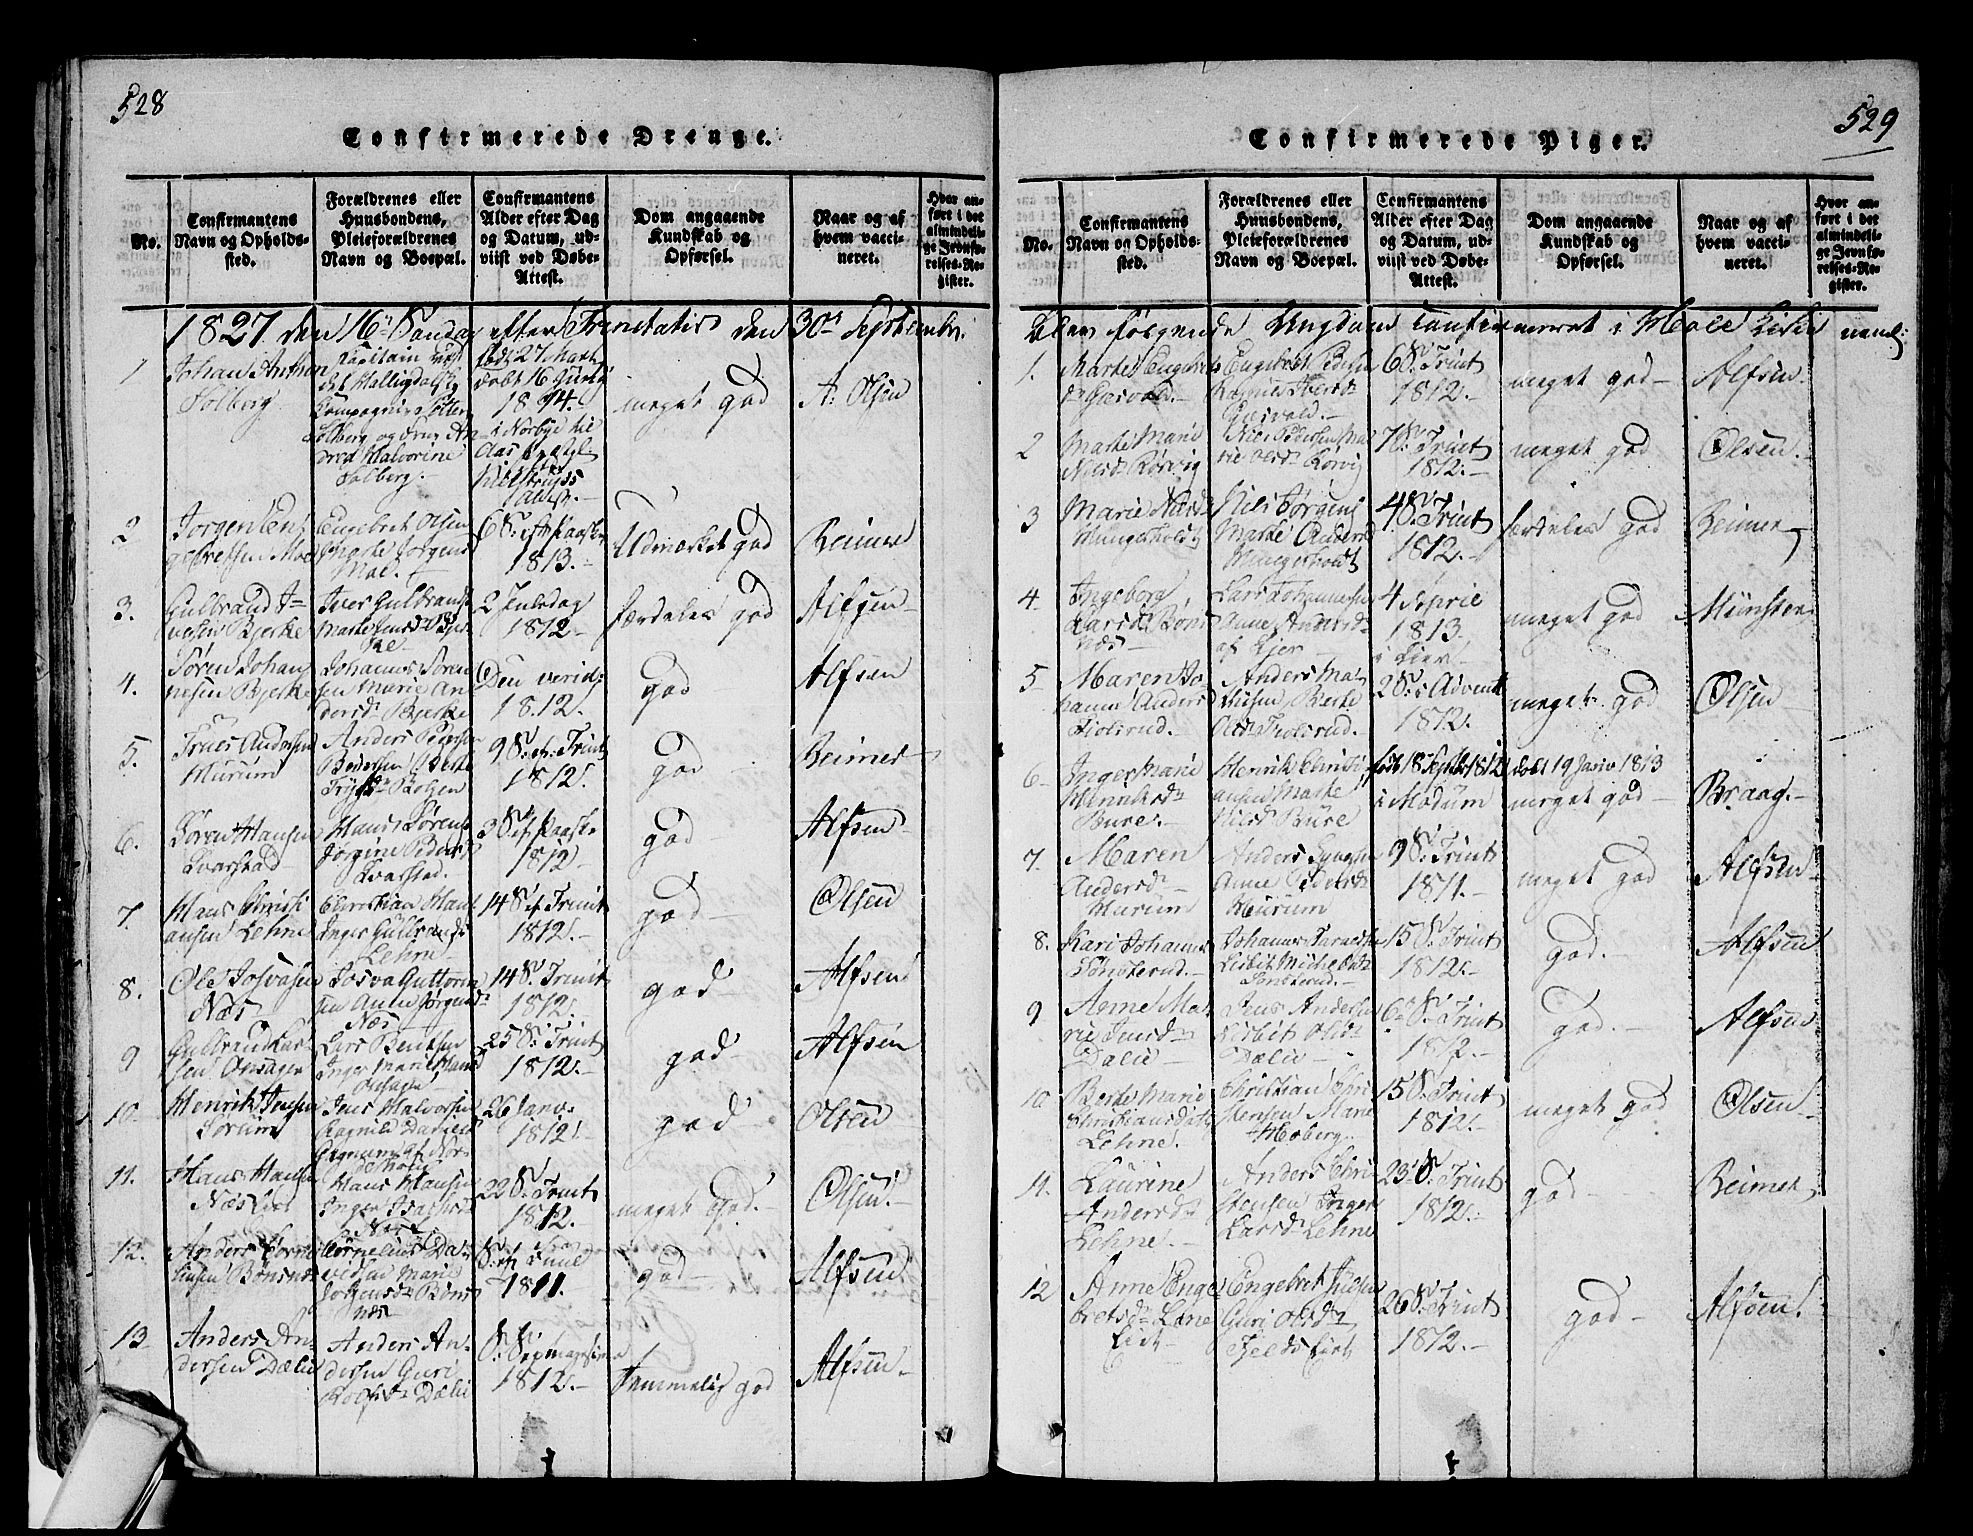 528
Confirmerede Drenge.
No.
Confirmantens Navn og Opholds-sted.
Forældrenes eller Huusbondens, Pleieforældrenes Navn og Boepæl.
Confirmantens Alder efter Dag og Datum, ud-viist ved Døbe-Attest.
Dom angaaende Kundskab og Opførsel.
Naar og af hvem vacci-neret.
Hvor an-ført i det almindeli-ge Jevnfø-relses-Re-gister.
1827 den 16de Søndag efter Trinitatis den 30te September
1
Johan Anthon
Solberg
Capitain ved
det Hallingdalske
Compagnie
Solberg og Frue An
drea Halvorine
Solberg.
født 27 Mart
døbt 16 Juny
1814.
i Norbye
Aas
Attest.
meget god
A: Olsen
2
Jørgen En
gebretsen Moe
Engebret Olsen
Marte Jørgens
Moe.
6 S. eft Paaske
1813.
Udmærket god
Reimer
3.
Gulbrand I=
versen Bjerke
Iver Guldbrands
Marte Jensd Bjer
ke
2 Juledag
1812
færdeles god
Alfsen
4.
Søren Johan
nesen Bjerke
Johannes Søren
sen Marie An
dersd Bjerke
Den
1812.
god
Alfsen
5.
Truls Andersen
Murum
Anders Pedersen
1812.
9 S. ef. Trinit
god
Reimer
6.
Søren Hansen
Svarstad
Hans Sørens
Jørgine Peders
Svarstad.
3 S. ef Paaske
1812
god
Alfsen
7.
Hans Christi
ansen Lehne
Christian Hans
Inger Gulbrands
Lehne
14 S. ef Trinit
1812.
god
Olsen
8.
Ole Josvasen
Næs
Josva Guttorm
sen Anne Jørgensd
Næs
14 S. Trinit
1812.
god
Alfsen
9
Gulbrand Lar
sen Onsager
Lars Bentsen
Inger Marie Hansd
Onsager
25 S. Trinit
1812.
god
Alfsen
10.
Henrik Jensen
Sørum
Jens Halvorsen
Ragnild Daniels
26 Janv.
1812.
god
Olsen
11.
Hans Hansen
Næs
Hans Hansen
Inger
Næs
22 S. Trinit
1812.
meget god.
Olsen.
12.
Anders Corne
liusen Bønsnæs
Cornelius Da-
vidsen Marie
Jørgensd Bøns
næs
S. eft Juul
1811.
god
Alfsen.
13
Anders An-
dersen Dælie
Anders An-
dersen Guri
Rolfsd Dælie
S. Septuagesima
1812.
Temmelig god
Alfsen
529
Confirmerede Piger.
No.
Confirmantens Navn og Opholds-sted.
Forældrenes eller Huusbondens, Pleieforældrenes Navn og Boepæl.
Confirmantens Alder efter Dag og Datum, ud-viist ved Døbe-Attest.
Dom angaaende Kundskab og Opførsel.
Naar og af hvem vacci-neret.
Hvor an-ført i det almindeli-ge Jevnfø-relses-Re-gister.
blev følgende Ungdom confirmeret i Hole Kirke neml:
1.
Marte Engebrets
dr Gjesvold.
Engebret Pedersen
Gjesvold.
6 S. Trinit
1812.
meget god
Alfsen.
2
Marte Marie
Nielsd Rørvig
Niels Pedersen Ma
rie Olsd Rørvig
7 S. Trinit
1812.
meget god
Olsen.
3
Marie Nielsd
Mungerholdt
Niels Jørgens
Marte Andersd
Mungerholdt
4 S. Trinit
1812.
færdeles god
Reimer
4.
Ingeborg
Larsd Bøns
næs
Lars Johannesen
Anne Andersd
af Lier
4 April
1813
i Lier
meget god
Münster
5
Maren Jo
hanne Andersd
Fiolsrud.
Anders Ma
thisen Berte
Olsd Fiolsrud.
2 S. i Advent
1812.
meget god
Olsen
6
Inger Marie
Henriksdr
Bure.
Henrik Christi
ansen Marte
Nielsd Bure
født 18 Septbr 1812 døbt 19 Janv 1813
i Modum
meget god
Braag.
7.
Maren
Andersdr
Murum
Anders
Anne Pedersd
Murum
9 S. Trinit
1811.
meget god
Alfsen
8.
Kari Johannesd
Sønsterud.
Johannes
Lisbet Michelsd
Sønsterud.
15 S. Trinit
1812.
god.
Alfsen
9
Anne Ma-
rie Jensdr
Dælie
Jens Andersen
Lisbet Olsd
Dælie
6 S. Trinit
1812.
god.
Alfsen
10.
Berte Marie
Christiansdatr
Lehne.
Christian Chri
stensen Marie
Moberg.
15 S. Trinit
1812.
meget god
Olsen
11.
Laurine
Andersdr
Lehne.
Anders Chri
stensen Inger
Larsd Lehne
23 S. Trinit
1812.
god
Reimer
12
Anne Enge
bretsdr
Engebret
Guri Olsdr
26 S. Trinit
1812.
god
Alfsen.